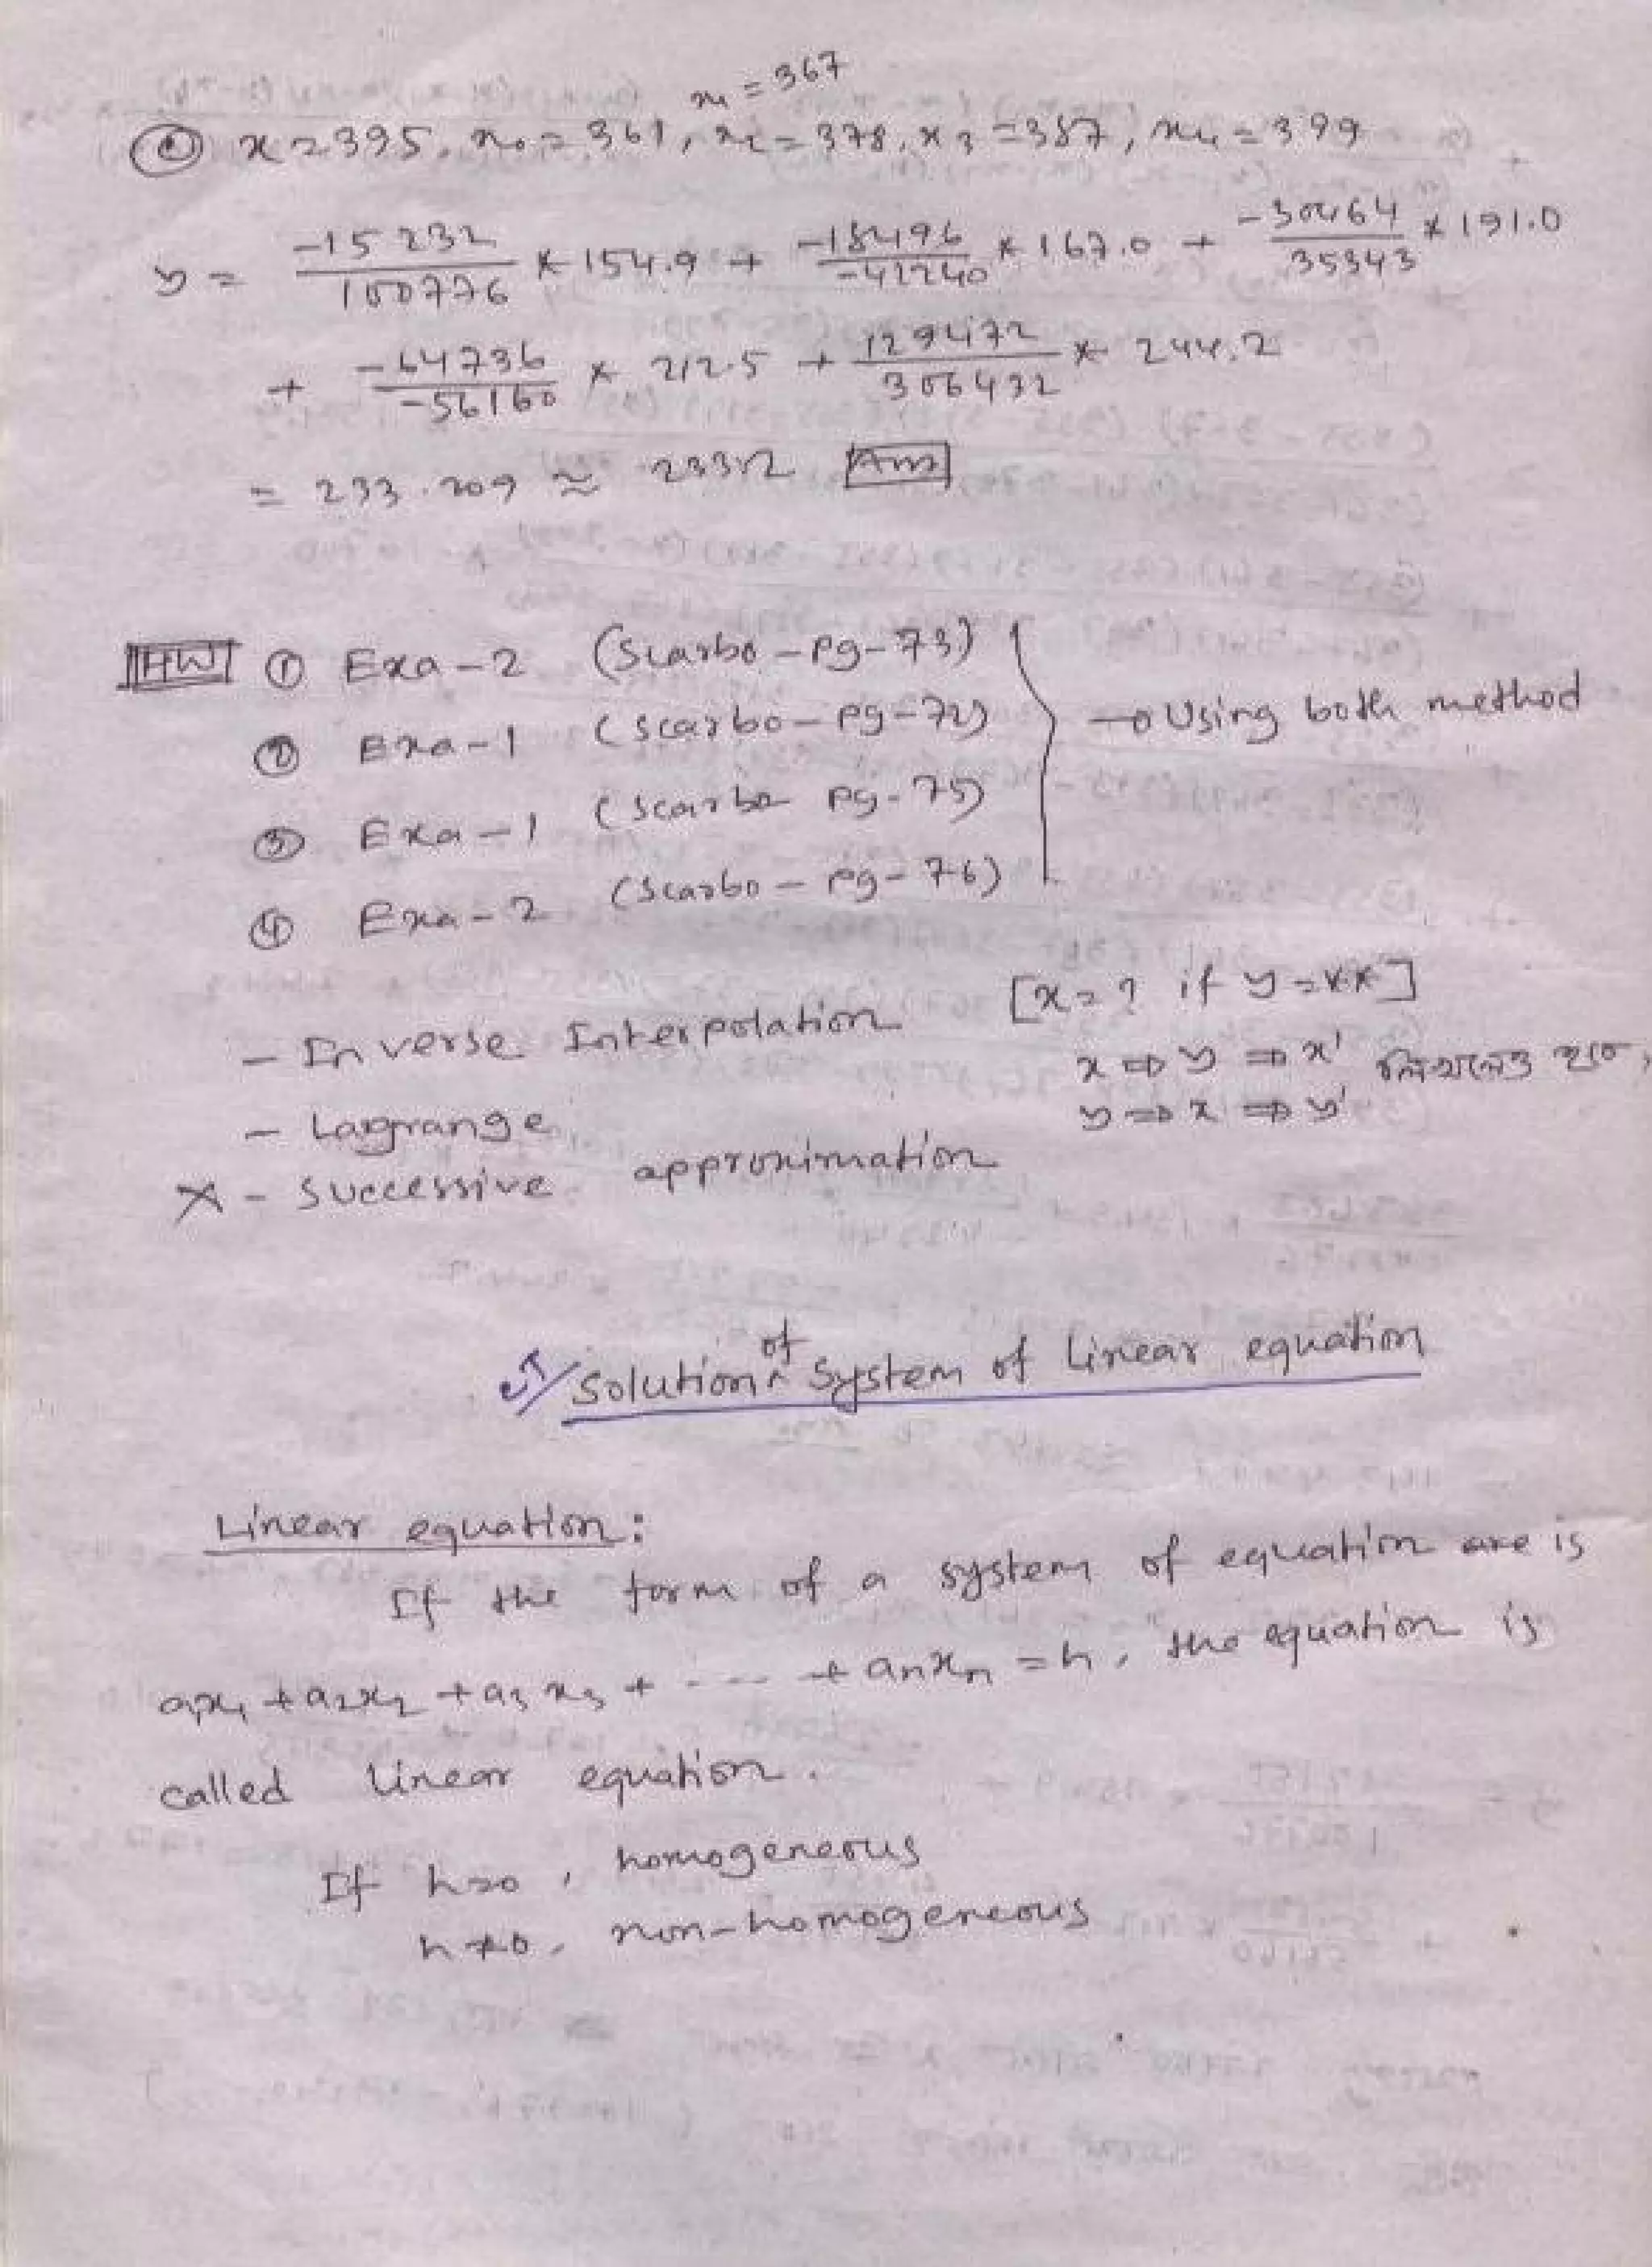 x₁ = 367
ⓒ x = 395, x₀ = 361, x₂ = 378, x₃ = 387, x₄ = 399
y = -15232/100776 * 154.9 + -18496/-42240 * 167.0 + -30464/35343 * 191.0
+ -64736/-56160 * 212.5 + 129472/306432 * 244.2
= 233.209 ≈ 233.2 Ans
HW ① Exa-2 (Scarbo-Pg-73)
② Exa-1 (Scarbo-Pg-72) → Using both method
③ Exa-1 (Scarbo Pg-75)
④ Exa-2 (Scarbo-Pg-76)
- Inverse Interpolation [x = ? if y = **]
x ⇒ y ⇒ x' লিখলেও হবে,
- Lagrange y ⇒ x ⇒ y'
× - Successive approximation
CT/ Solution of System of Linear equation
Linear equation:
If the form of a system of equation are is
a₁x₁ + a₂x₂ + a₃x₃ + - - - - + aₙxₙ = h, the equation is
called linear equation.
If h=0, homogeneous
h≠0, non-homogeneous